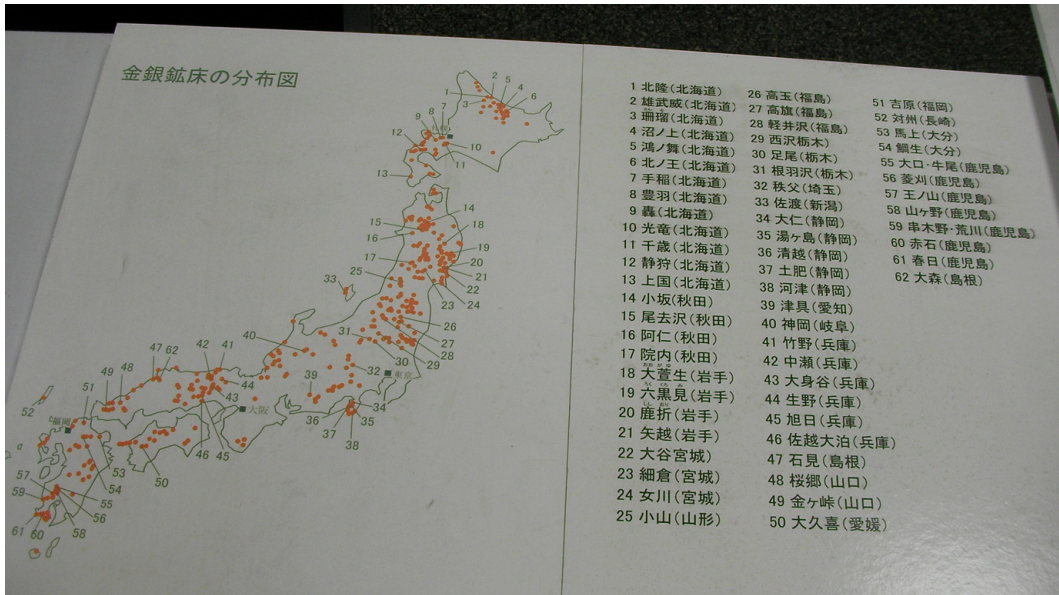 金銀鉱床の分布図
1
2
3
5
4
6
9
8
7
12
10
11
13
14
15
16
18
17
19
20
21
22
23
24
25
33
26
27
28
29
30
31
32
東京
40
39
34
35
36
37
38
47 62
42
41
44
43
大阪
49
48
51
52
福岡
46
45
50
53
54
55
56
57
58
59
60
61
1 北隆(北海道)
2 雄武威(北海道)
3 珊瑠(北海道)
4 沼ノ上(北海道)
5 鴻ノ舞(北海道)
6 北ノ王(北海道)
7 手稲(北海道)
8 豊羽(北海道)
9 轟(北海道)
10 光竜(北海道)
11 千歳(北海道)
12 静狩(北海道)
13 上国(北海道)
14 小坂(秋田)
15 尾去沢(秋田)
16 阿仁(秋田)
17 院内(秋田)
18 大萱生(岩手)
19 六黒見(岩手)
20 鹿折(岩手)
21 矢越(岩手)
22 大谷宮城)
23 細倉(宮城)
24 女川(宮城)
25 小山(山形)
26 高玉(福島)
27 高旗(福島)
28 軽井沢(福島)
29 西沢栃木)
30 足尾(栃木)
31 根羽沢(栃木)
32 秩父(埼玉)
33 佐渡(新潟)
34 大仁(静岡)
35 湯ヶ島(静岡)
36 清越(静岡)
37 土肥(静岡)
38 河津(静岡)
39 津具(愛知)
40 神岡(岐阜)
41 竹野(兵庫)
42 中瀬(兵庫)
43 大身谷(兵庫)
44 生野(兵庫)
45 旭日(兵庫)
46 佐越大泊(兵庫)
47 石見(島根)
48 桜郷(山口)
49 金ヶ峠(山口)
50 大久喜(愛媛)
51 吉原(福岡)
52 対州(長崎)
53 馬上(大分)
54 鯛生(大分)
55 大口・牛尾(鹿児島)
56 菱刈(鹿児島)
57 王ノ山(鹿児島)
58 山ヶ野(鹿児島)
59 串木野・荒川(鹿児島)
60 赤石(鹿児島)
61 春日(鹿児島)
62 大森(島根)